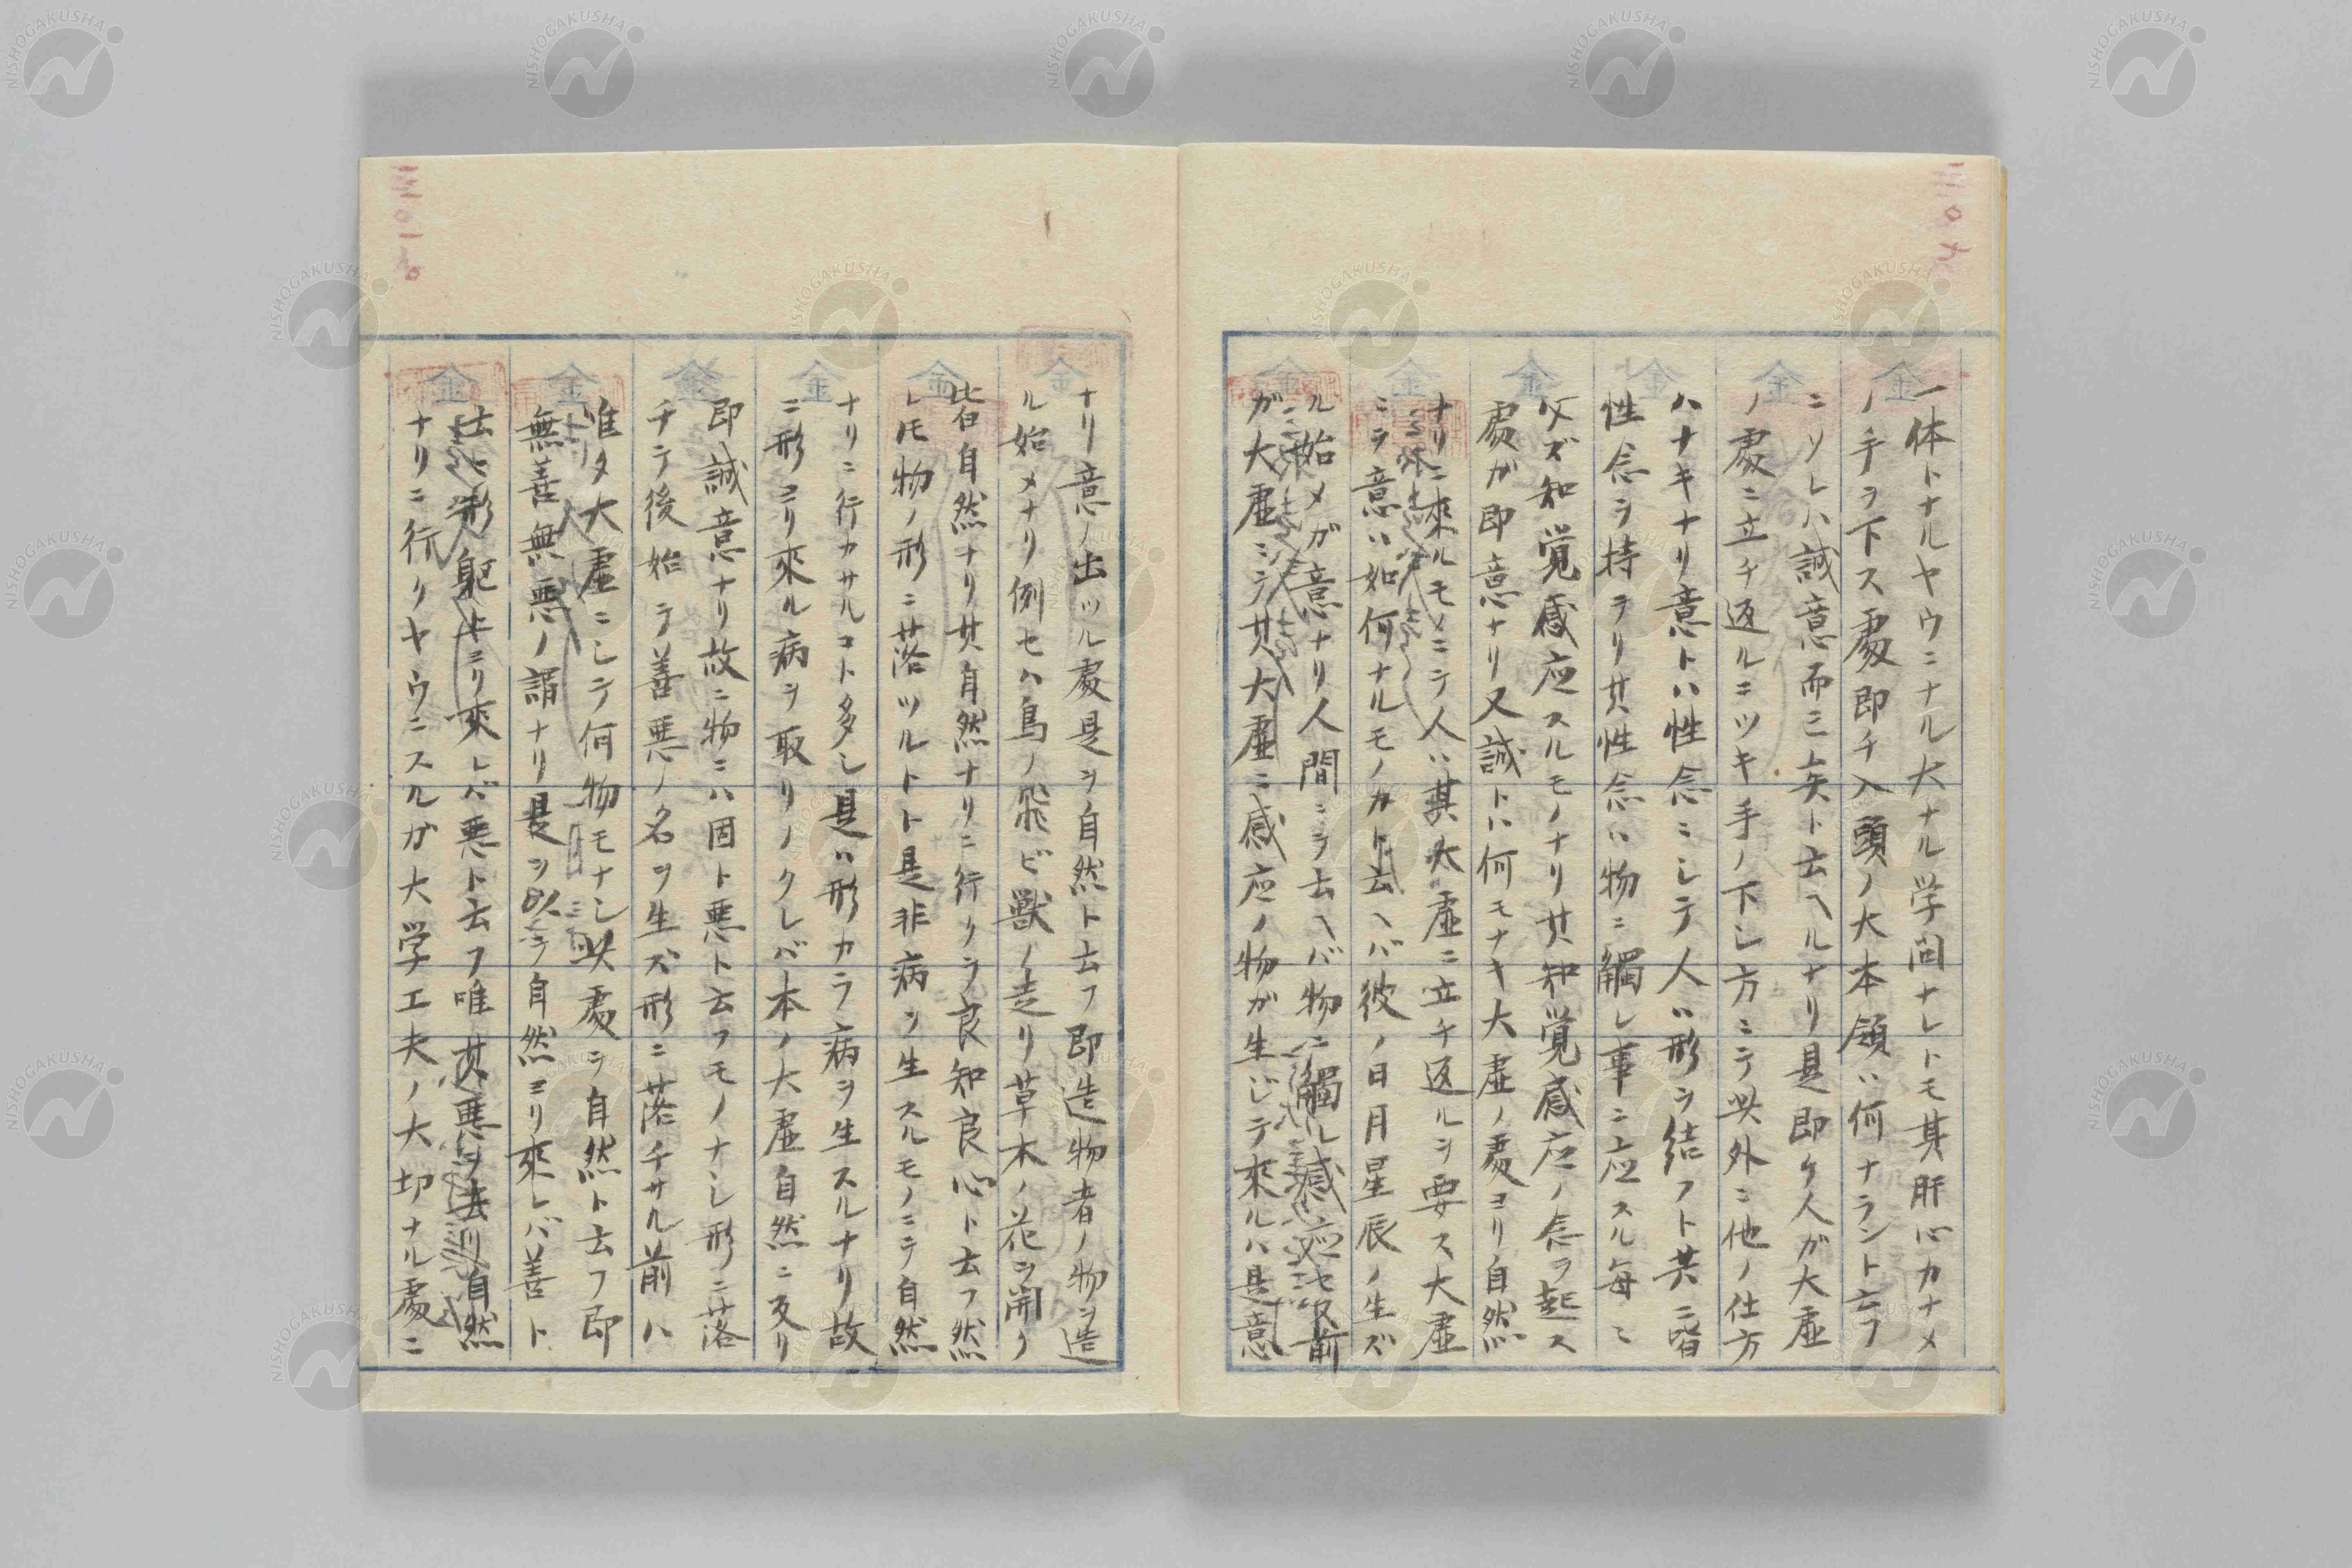 一体トナルヤウニナル大ナル学問ナレトモ其肝心カナメ
ノ手ヲ下ス處即チ入頭ノ大本領ハ何ナラント云フ
ニソレハ誠意而已矣ト云ヘルナリ是即ケ人ガ大虚
ノ處ニ立チ返ルニツキ手ノ下シ方ニテ此外ニ他ノ仕方
ハナキナリ意トハ性念ニシテ人ハ形ヲ結フト共ニ皆
性念ヲ持テリ其性念ハ物ニ觸レ事ニ应スル毎ニ
必ズ知覚感应スルモノナリ其知覚感应ノ念ヲ起ス
處ガ即意ナリ又誠トハ何モナキ大虚ノ處ヨリ自然
ナリニ來ルモノニテ人ハ其大虚ニ立チ返ルヲ要ス大虚
ニテ意ハ如何ナルモノカト云ヘバ彼ノ日月星辰ノ生ズ
ル始メガ意ナリ人間ニテ云ヘバ物ニ觸ル感应セヌ前
ガ大虚ニテ其大虚ニ感应ノ物ガ生ジテ來ルハ是意
ナリ意ノ出ツル處是ヲ自然ト云フ即造物者ノ物ヲ造
ル始メナリ例セハ鳥ノ飛ビ獣ノ走リ草木ノ花ヲ開ク
皆自然ナリ其自然ナリニ行クヲ良知良心ト云フ然
レモ物ノ形ニ落ツルトト是非病ヲ生スルモノニテ自然
ナリニ行カサルコト多シ是ハ形カラ病ヲ生スルナリ故
ニ形ヨリ來ル病ヲ取リノクレバ本ノ大虚自然ニ反リ
即誠意ナリ故ニ物ニハ固ト悪ト云フモノナシ形ニ落
チテ後始テ善悪ノ名ヲ生ズ形ニ落チサル前ハ
唯タ大虚ニシテ何物モナシ此處ヲ自然ト云フ即
無善無悪ノ謂ナリ是ヲ以テ自然ヨリ來レバ善ト
云ヒ形躯上ヨリ來レバ悪ト云フ唯其悪ヲ去リ自然
ナリニ行クヤウニスルガ大学工夫ノ大切ナル處ニ
金
NISHOGAKUSHA